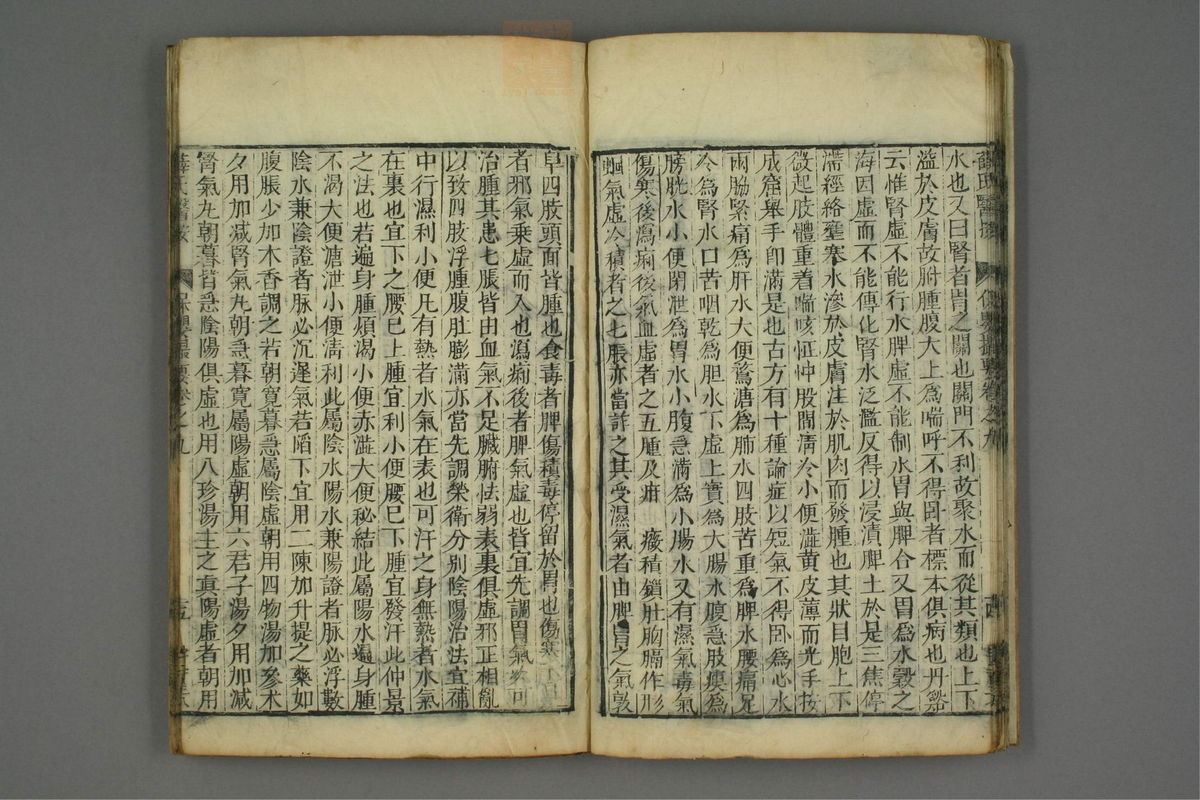 薛氏醫按 保嬰撮要卷之九
水也又曰腎者胃之關也關門不利故聚水而從其類也上下
溢於皮膚故胕腫腹大上爲喘呼不得卧者標本俱病也丹谿
云惟腎虛不能行水脾虛不能制水胃與脾合又胃爲水穀之
海因虛而不能傳化腎水泛濫反得以浸漬脾土於是三焦停
滯經絡壅塞水滲於皮膚注於肌肉而發腫也其狀目胞上下
微起肢體重着喘咳怔忡股間淸冷小便澁黃皮薄而光手按
成窟舉手卽滿是也古方有十種論症以短氣不得卧爲心水
兩脇緊痛爲肝水大便鶩溏爲肺水四肢苦重爲脾水腰痛足
冷爲腎水口苦咽乾爲胆水下虛上實爲大腸水腹急肢瘦爲
膀胱水小便閉泄爲胃水小腹急滿爲小腸水又有濕氣毒氣
傷寒後瀉痢後氣血虛者之五腫及疳 癥積鎖肚胸膈作形
氣虛冷積者之七脹亦當詳之其受濕氣者由脾胃之氣敦
阜四肢頭面皆腫也食毒者脾傷積毒停留於胃也傷寒
者邪氣乘虛而入也瀉痢後者脾氣虛也皆宜先調胃氣 可
治腫其患七脹皆由血氣不足臟腑怯弱表裏俱虛邪正相亂
以致四肢浮腫腹肚膨滿亦當先調榮衛分別陰陽治法宜補
中行濕利小便凡有熱者水氣在表也可汗之身無熱者水氣
在裏也宜下之腰巳上腫宜利小便腰巳下腫宜發汗此仲景
之法也若遍身腫煩渴小便赤澁大便秘結此屬陽水遍身腫
不渴大便溏泄小便淸利此屬陰水陽水兼陽證者脉必浮數
陰水兼陰證者脉必沉遲氣若陷下宜用二陳加升提之藥如
腹脹少加木香調之若朝寬暮急屬陰虛朝用四物湯加參术
夕用加减腎氣丸朝急暮寬屬陽虛朝用六君子湯夕用加减
腎氣丸朝暮皆急陰陽俱虛也用八珍湯主之眞陽虛者朝用
薛氏醫按 保嬰撮要卷之九